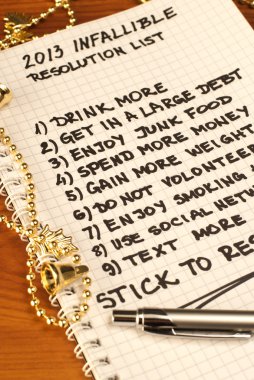 2013 INFALLIBLE
RESOLUTION LIST
1) DRINK MORE
2) GET IN A LARGE DEBT
3) ENJOY JUNK FOOD
4) SPEND MORE MONEY
5) GAIN MORE WEIGHT
6) DO NOT VOLUNTEER
7) ENJOY SMOKING
8) USE SOCIAL
9) TEXT MORE
STICK TO